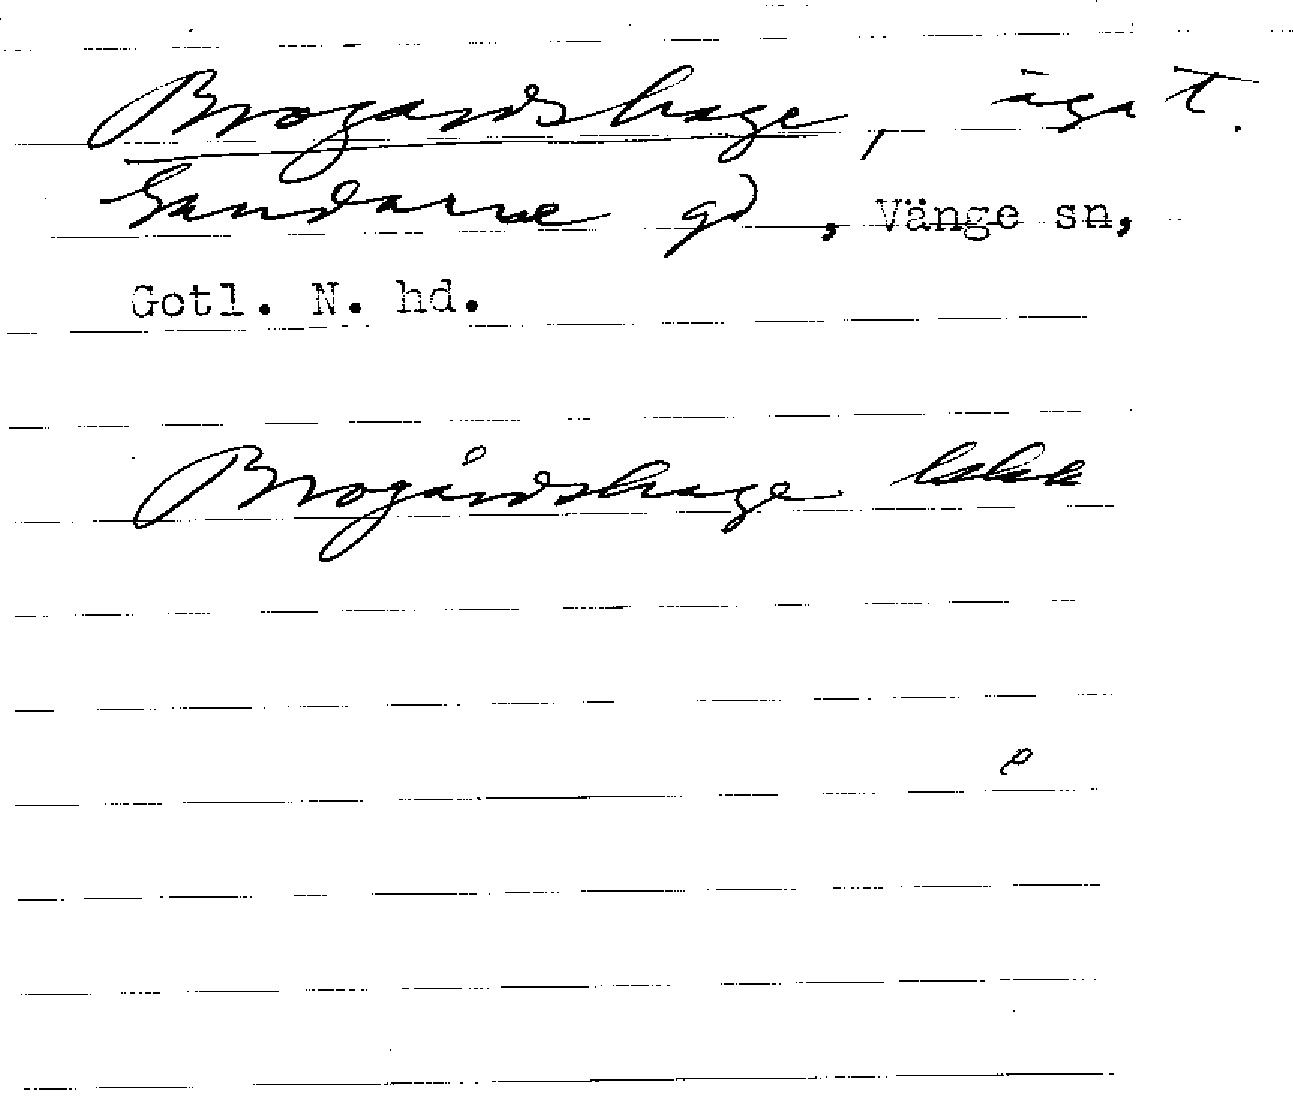 Brogardshage, äga t.
Gandarve gd, Vänge sn,
Gotl. N. hd.
Brogårdshage